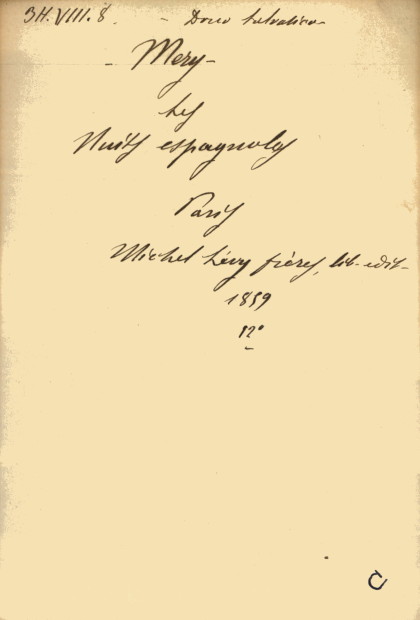 34.VIII.8. - Dono Salvatico -
- Mery -
Les
Nuits espagnoles
Paris
Michel Lévy frères, lib-edit-
1859
12°
C